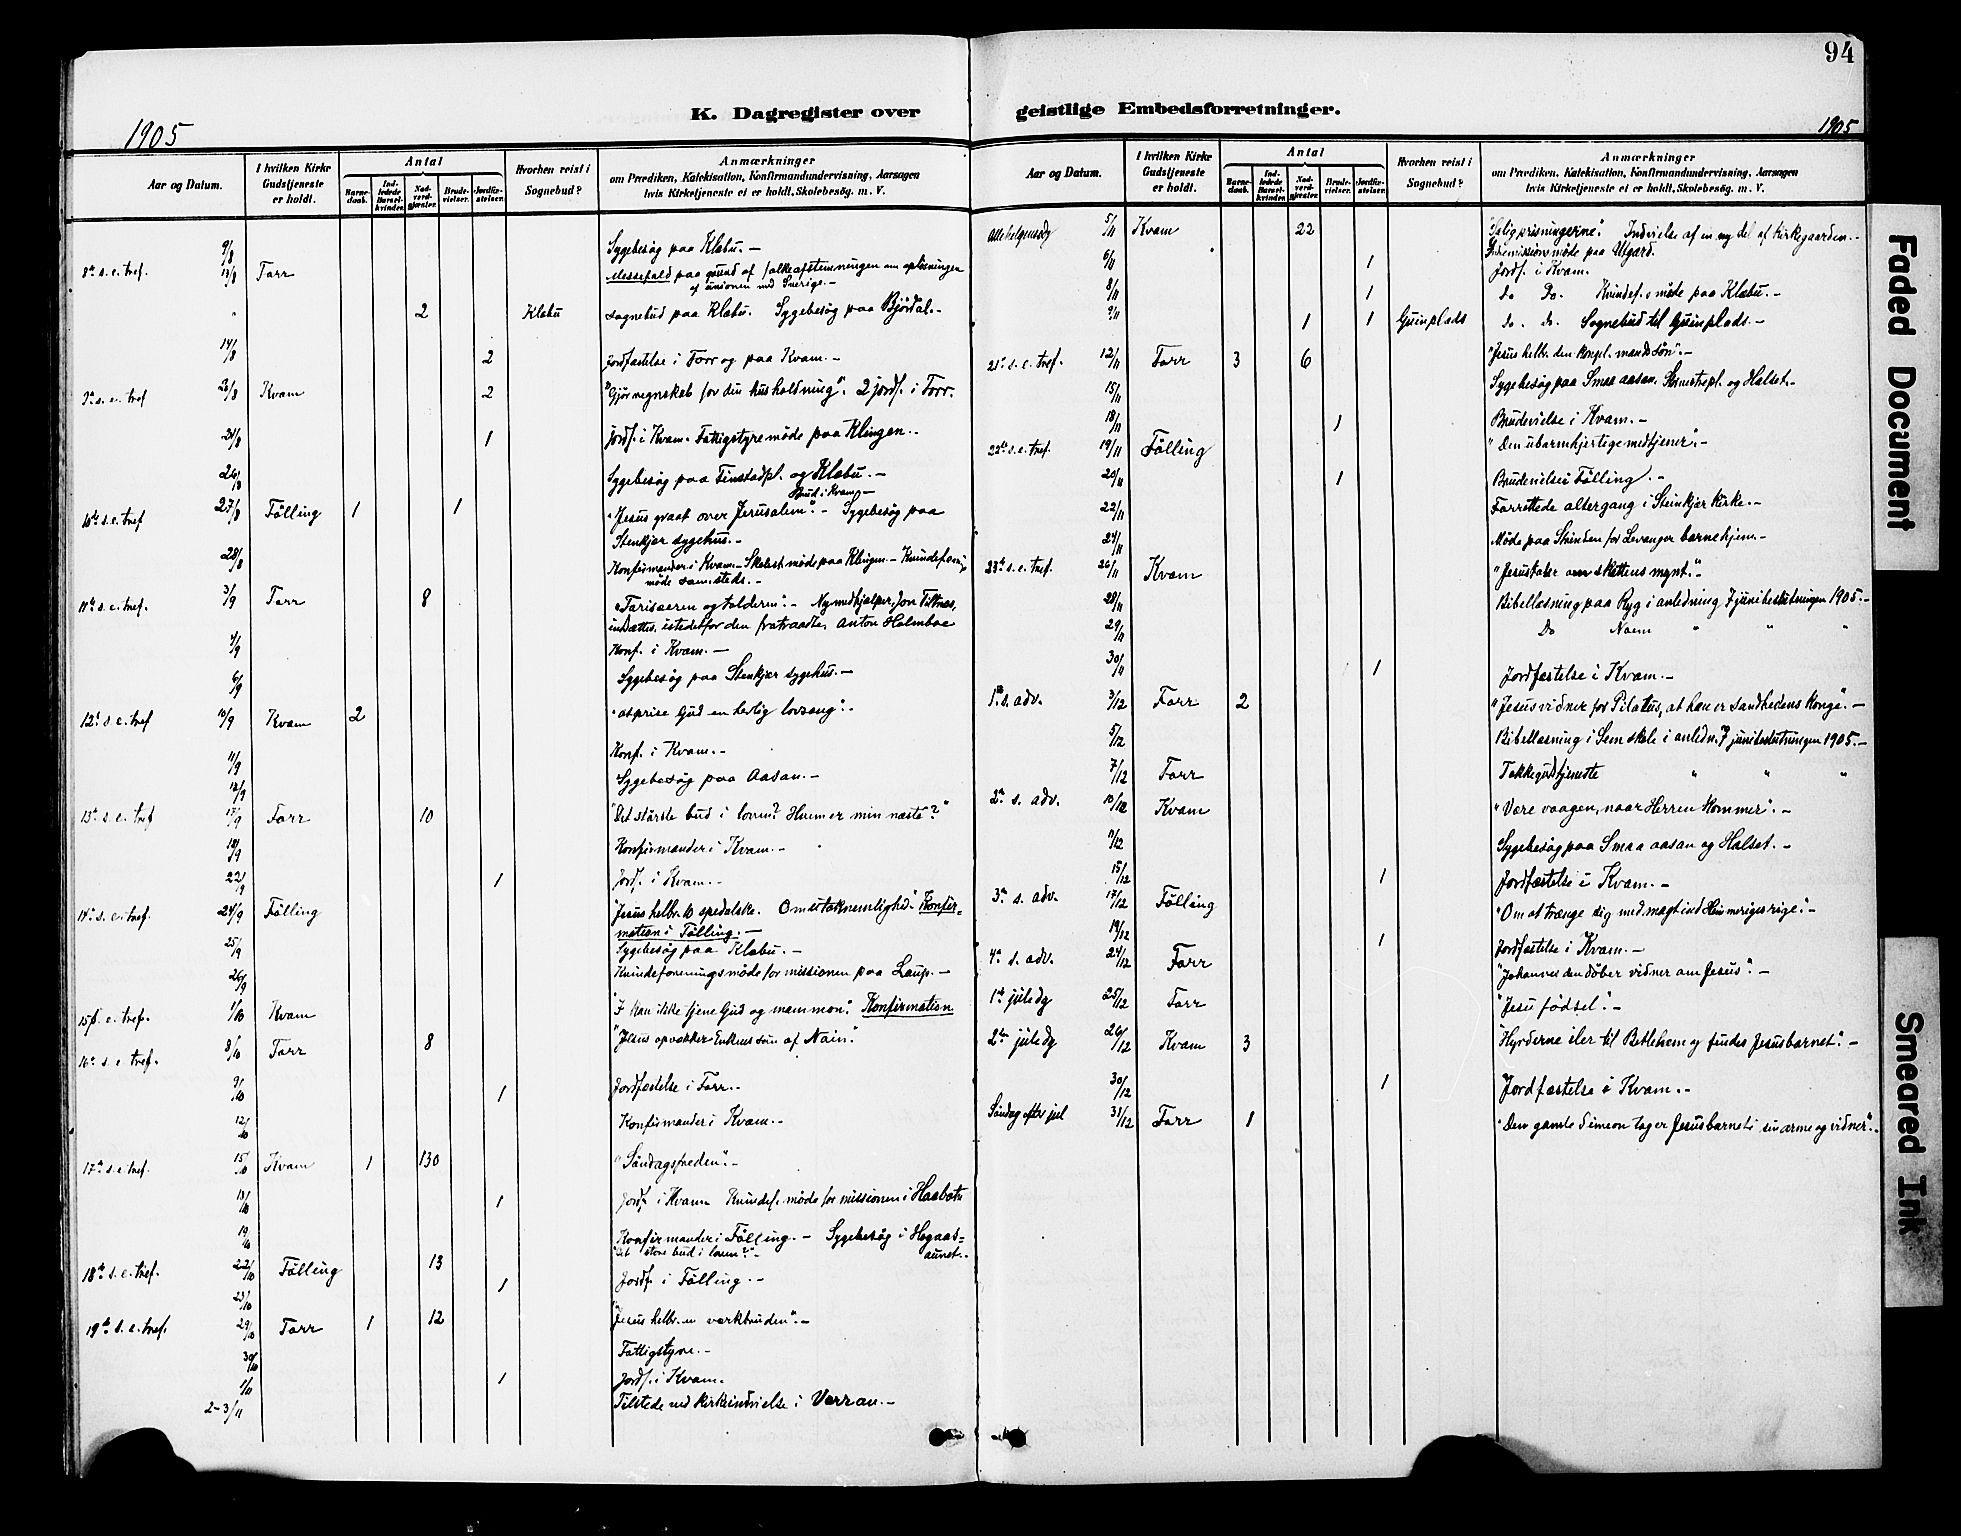 94
K. Dagregister over
geistlige Embedsforretninger.
1905
1905
Aar og Datum.
I hvilken Kirke Gudstjeneste er holdt.
Antal
Barnedaab.
Indledede Barselkvinder.
Nadverdgjæster.
Brudevielser.
Jordfæstelser.
Hvorhen reist i Sognebud?
Anmærkninger
om Prædiken, Katekisation, Konfirmandundervisning, Aarsagen
hvis Kirketjeneste ei er holdt, Skolebesøg. m. V.
9/8 Sygebesøg paa Klæbu.-
8de s. e. tref. 13/8 Forr Messefald paa grund af folkeafstemningen om opløsningen
af unionen med Sverige.-
" 2 Klæbu Sognebud paa Klæbu. Sygebesøg paa Bjørdal.-
14/8 2 Jordfæstelse i Forr og paa Kvam.-
9de s. e. tref 20/8 Kvam 2 "Gjør regnskab for din husholdning". 2 jordf. i Forr.
24/8 1 Jordf. i Kvam. Fattigstyremøde paa Klingen.-
26/8 Sygebesøg paa Finstadpl. og Klæbu.-
Brud i Kvam-
10de s. e. tref 27/8 Følling 1 1 "Jesus graat over Jerusalem".- Sygebesøg paa
Stenkjær sygehus.-
28/8 Konfirmander i Kvam.- Skolest. møde paa Klingen.- Kvindeforenings
møde sammesteds.-
11te s. e. tref. 3/9 Forr 8 "Farisæeren og tolderen".- Ny medhjælper, Jon Tiltnæs,
indsættes, istedetfor den fratraadte, Anton Holmboe
4/9 Konf. i Kvam.-
6/9 Sygebesøg paa Stenkjær sygehus.-
12te s. e. tref 10/9 Kvam 2 "At prise Gud en herlig lovsang".-
11/9 Konf. i Kvam.-
12/9 Sygebesøg paa Aasan.-
13de s. e. tref 17/9 Forr 10 "Det største bud i loven? Hvem er min næste?"
18/9 Konfirmander i Kvam.-
22/9 1 Jordf. i Kvam.-
14de s. e. tref. 24/9 Følling "Jesus helbr. 10 spedalske. Om utaknemlighed." Konfir-
mation i Følling.-
25/9 Sygebesøg paa Klæbu.-
26/9 Kvindeforeningsmøde for missionen paa Laup.-
15de s. e. tref. 1/10 Kvam "I kan ikke tjene Gud og mammon". Konfirmation
16de s. e. tref. 8/10 Forr 8 "Jesus opvækker Enkens søn af Nain".
9/10 1 Jordfæstelse i Forr.-
12/10 Konfirmander i Kvam.-
17de s. e. tref. 15/10 Kvam 1 130 "Søndagsfreden".-
18/10 1 Jordf. i Kvam Kvindef. møde for missionen i Haabets
19/10 Konfirmander i Følling.- Sygebesøg i Hegaas=
"Det store bud i loven?"- aunet.-
18de s. e. tref. 22/10 Følling 13
23/10 1 Jordf. i Følling.-
19de s. e. tref. 29/10 Forr 1 12 "Jesus helbr. en værkbruden".-
30/10 Fattigstyre.-
1/11 1 Jordf. i Kvam.
2-3/11 Tilstede ved kirkeindvielse i Verran.-
Aar og Datum.
I hvilken Kirke Gudstjeneste er holdt.
Antal
Barnedaab.
Indledede Barselkvinder.
Nadverdgjæster.
Brudevielser.
Jordfæstelser.
Hvorhen reist i Sognebud?
Anmærkninger
om Prædiken, Katekisation, Konfirmandundervisning, Aarsagen
hvis Kirketjeneste ei er holdt, Skolebesøg. m. V.
Allehelgensdg 5/11 Kvam 22 "Saligprisningerne". Indvielse af en ny del af kirkegaarden.-
Indremissionsmøde paa Utgard.
6/11 1 Jordf. i Kvam.
8/11 1 Do Do. Kvindef. møde paa Klæbu.-
9/11 1 1 Guinplads Do. Do. Sognebud til Guinplads.-
21de s. e. tref. 12/11 Forr 3 6 "Jesus helbr. den kongel. mands søn".-
15/11 Sygebesøg paa Smaaaasan og Halset.-
18/11 1 Brudevielse i Kvam.-
22de s. e. tref. 19/11 Følling "Den ubarmhjertige medtjener".-
20/11 1 Brudevielse i Følling.-
22/11 Forrettede altergang i Steinkjær kirke.-
24/11 Møde paa Strinden for Levanger barnehjem.-
23de s. e. tref. 26/11 Kvam "Jesus taler om skattens mynt."-
28/11 Bibellæsning paa Ryg i anledning 7 junibeslutningen 1905.-
29/11 Do Naem " " "
30/11 1 Jordfæstelse i Kvam.-
1ste s. adv. 3/12 Forr 2 "Jesus vidner for Pilatus, at han er sandhedens konge".-
5/12 Bibellæsning i Sem skole i anledn. 7 junibeslutningen 1905.-
7/12 Forr Takkegudstjeneste " " "
2den s. adv. 10/12 Kvam "Være vaagen, naar Herren kommer".-
11/12 Sygebesøg paa Smaaaasan og Halset.-
15/12 1 Jordfæstelse i Kvam.-
3de s. adv. 17/12 Følling "Om at trænge sig med magt ind i Himmeriges rige".-
19/12 1 Jordfæstelse i Kvam.-
4de s. adv. 24/12 Forr "Johannes den døber vidner om Jesus".-
1ste juledg 25/12 Forr "Jesu fødsel".-
2den juledg 26/12 Kvam 3 "Hyrderne iler til Betlehem og findes Jesusbarnet".-
30/12 1 Jordfæstelse i Kvam.-
Søndag efter jul 31/12 Forr 1 "Den gamle Simeon tager Jesusbarnet i sin arme og vidner".-
Faded Document
Smeared Ink